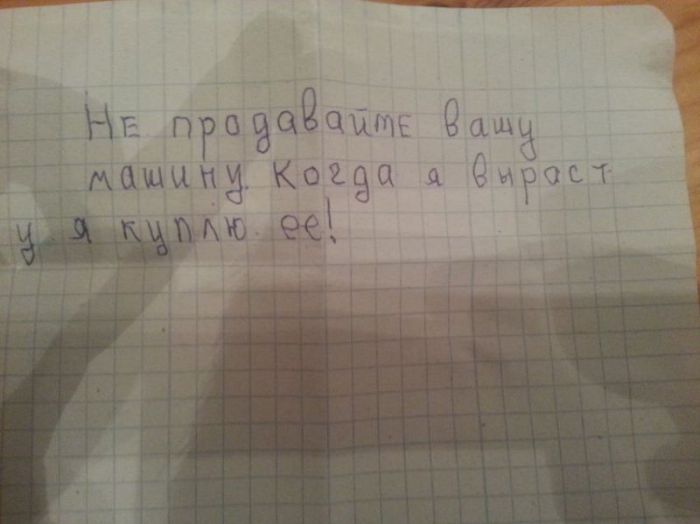 Не продавайте вашу
машину. Когда я выраст
у я куплю ее!